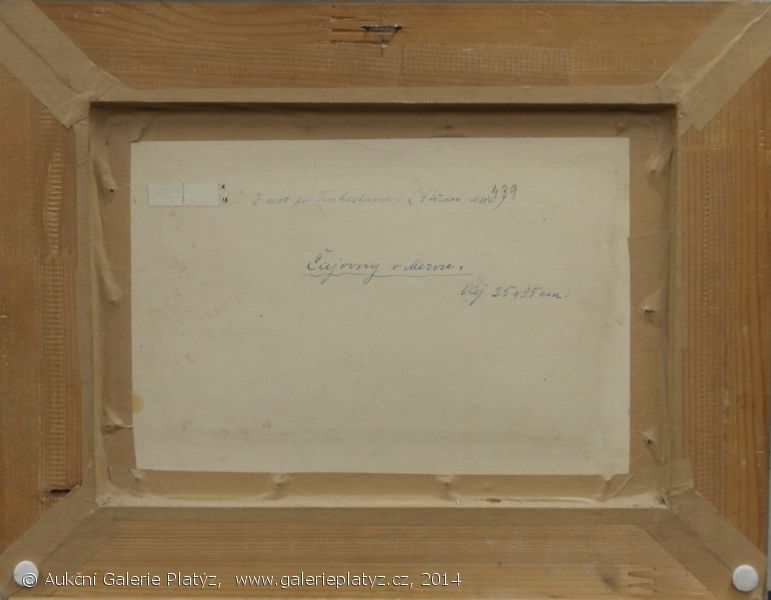 Z cest po Turkestanu. (Střední Asie) 439
Čajovny v Mervu.
Olej 25x35 cm.
© Aukční Galerie Platýz, www.galerieplatyz.cz, 2014